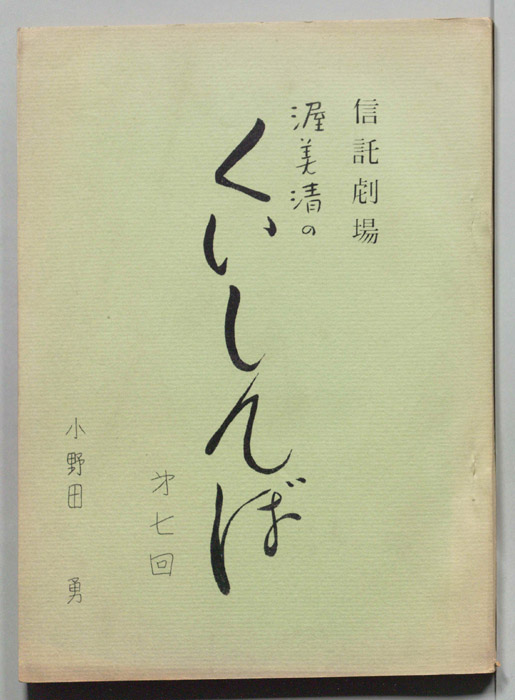 信託劇場
渥美清の
くいしんぼ
㐧七回
小野田 勇